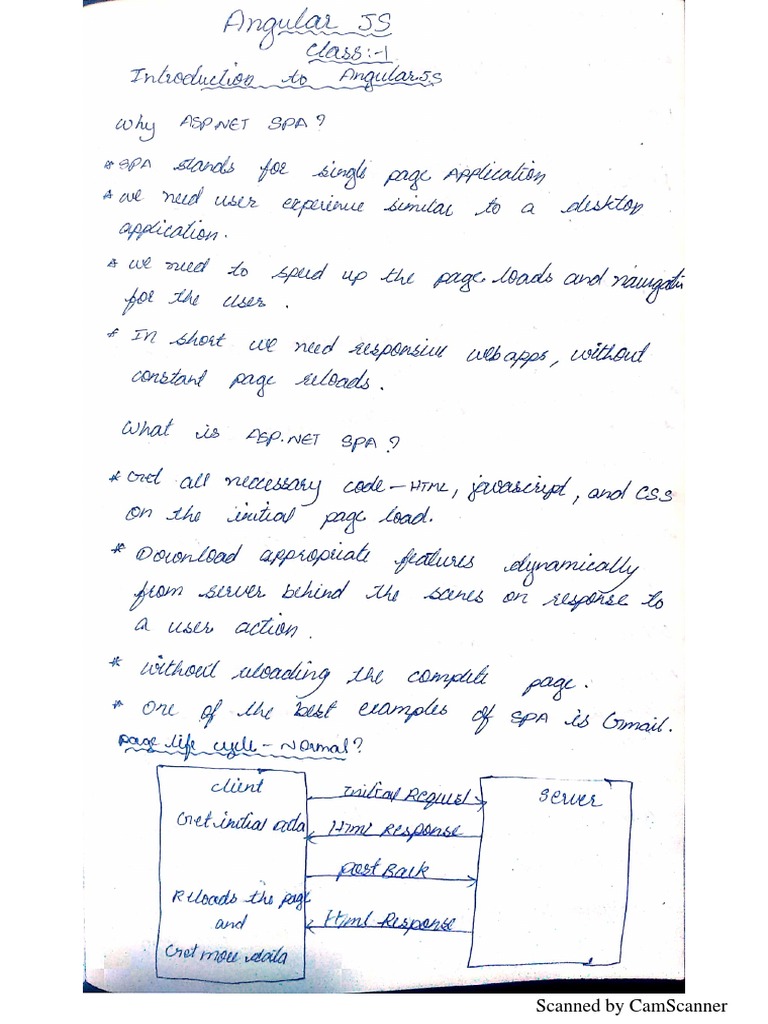 Angular JS
Class:-1
Introduction to AngularJS
Why ASP.NET SPA?
* SPA stands for single page Application
* we need user experience similar to a desktop
application.
* we need to speed up the page loads and navigati
for the user.
* In short we need responsive web apps, without
constant page reloads.
What is ASP.NET SPA?
* Get all necessary code - HTML, javascript, and CSS
on the initial page load.
* Download appropriate features dynamically
from server behind the scenes on response to
a user action.
* without reloading the complete page.
* One of the best examples of SPA is Gmail.
page life cycle - Normal?
client
Get initial data
Reloads the page
and
Get more data
Initial Request
Html Response
post Back
Html Response
Server
Scanned by CamScanner